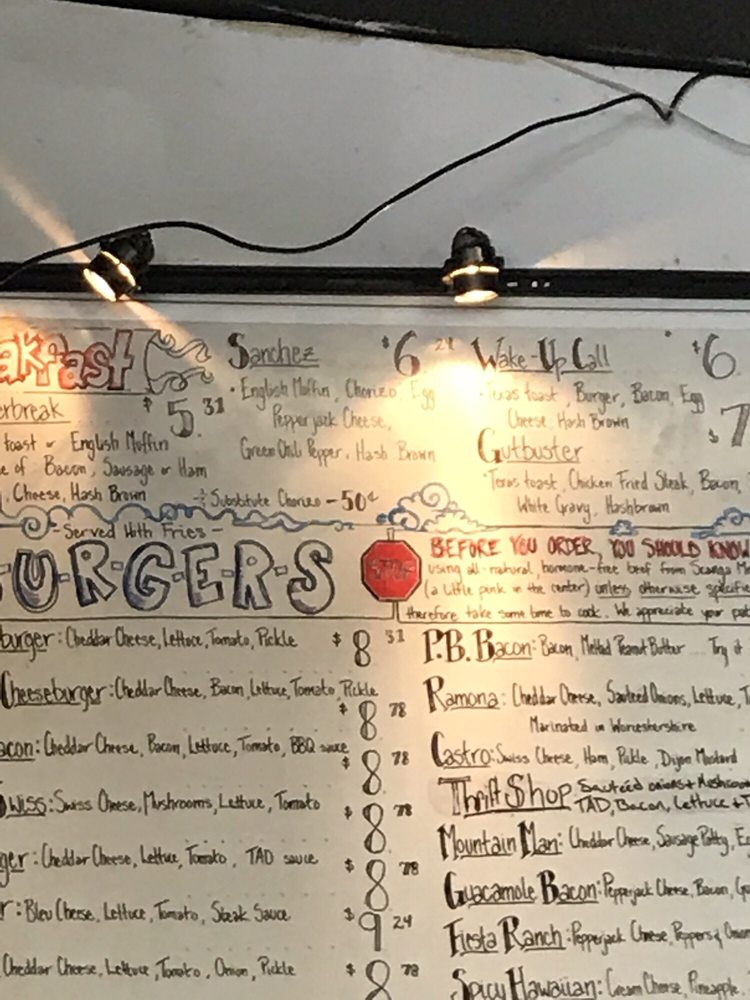 akfast
erbreak $5.31
toast or English Muffin
e of Bacon, Sausage or Ham
, Cheese, Hash Brown
Sanchez $6.21
• English Muffin, Chorizo, Egg
Pepperjack Cheese,
Green Chili Pepper, Hash Brown
Substitute Chorizo - 50¢
Wake-Up Call $6.
Texas toast, Burger, Bacon, Egg
Cheese, Hash Brown
Gutbuster $7
Texas toast, Chicken Fried Steak, Bacon,
White Gravy, Hashbrown
- Served With Fries -
U-R-G-E-R-S
STOP
BEFORE YOU ORDER, YOU SHOULD KNOW
using all-natural, hormone-free beef from Scanga Me
(a little pink in the center) unless otherwise specifi
therefore take some time to cook. We appreciate your pat
burger: Cheddar Cheese, Lettuce, Tomato, Pickle $8.51
Cheeseburger: Cheddar Cheese, Bacon, Lettuce, Tomato, Pickle
$8.78
acon: Cheddar Cheese, Bacon, Lettuce, Tomato, BBQ sauce
$8.78
wiss: Swiss Cheese, Mushrooms, Lettuce, Tomato $8.78
ger: Cheddar Cheese, Lettuce, Tomato, TAD sauce $8.78
r: Bleu Cheese, Lettuce, Tomato, Steak Sauce $9.24
Cheddar Cheese, Lettuce, Tomato, Onion, Pickle $8.78
P.B. Bacon: Bacon, Melted Peanut Butter .... Try it
Ramona: Cheddar Cheese, Sauteed Onions, Lettuce, T
Marinated in Worcestershire
Castro: Swiss Cheese, Ham, Pickle, Dijon Mustard
Thrift Shop Sauteed onions + Mushroom
TAD, Bacon, Lettuce + T
Mountain Man: Cheddar Cheese, Sausage Patty, Eg
Guacamole Bacon: Pepperjack Cheese, Bacon, Gu
Fiesta Ranch: Pepperjack Cheese, Peppers & Onion
Spicy Hawaiian: Cream Cheese, Pineapple,